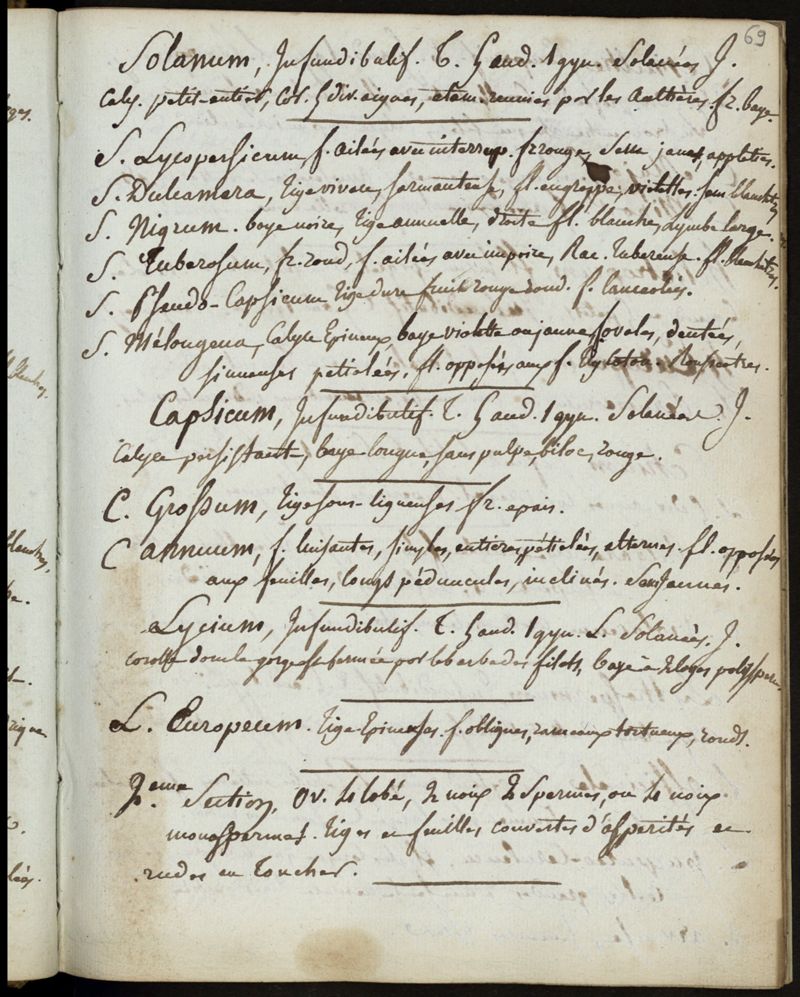 69
Solanum, Infundibulif. T. 5 and. 1 gyn. Solanées J.
Caly. petit-entier, Cor. 5 div. aigues, etam. reunies par les Anthères. fr. baye.
S. Lycopersicum, f. ailées avec interrup. fr. rouge, Sem. jaunes, applaties.
S. Dulcamara, tige vivace, sarmenteuse, fl. en grappe, violettes. sem. blanchatres
S. Nigrum. baye noire, tige annuelle, droite fl. blanche, Lymbe large.
S. Tuberosum, fr. rond, f. ailées avec impaire, Rac. tubereuse. fl. blanchatres.
S. Pseudo-Capsicum tige dure fruit rouge rond. f. lanceolées.
S. Mélongena, Calyce Epineux, baye violette ou jaune f. ovales, dentées,
sinueuses petiolées, fl. opposées aux f.
Capsicum, Infundibulif. T. 5 and. 1 gyn. Solanées. J.
Calyce persistant, baye longue, sans pulpe, biloc, rouge.
C. Grossum, tige sous-ligneuse fr. epais.
C annuum, f. luisantes, simples, entieres, pétiolées, alternes fl. opposées
aux feuilles, longs péduncules, inclinés. Sem. jaunes.
Lycium, Infundibulif. T. 5 and. 1 gyn. L. Solanées. J.
corolle dont la gorge est fermée par les barbes des filets, baye à 2 loges polysperm.
L. Europeum. tige Epineuse. f. obliques, rameaux tortueux, ronds.
2.eme Section, Ov. 4 lobé, 2 noix 2 spermes, ou 4 noix
monospermes. tiges et feuilles couvertes d'asperités et
rudes au toucher.